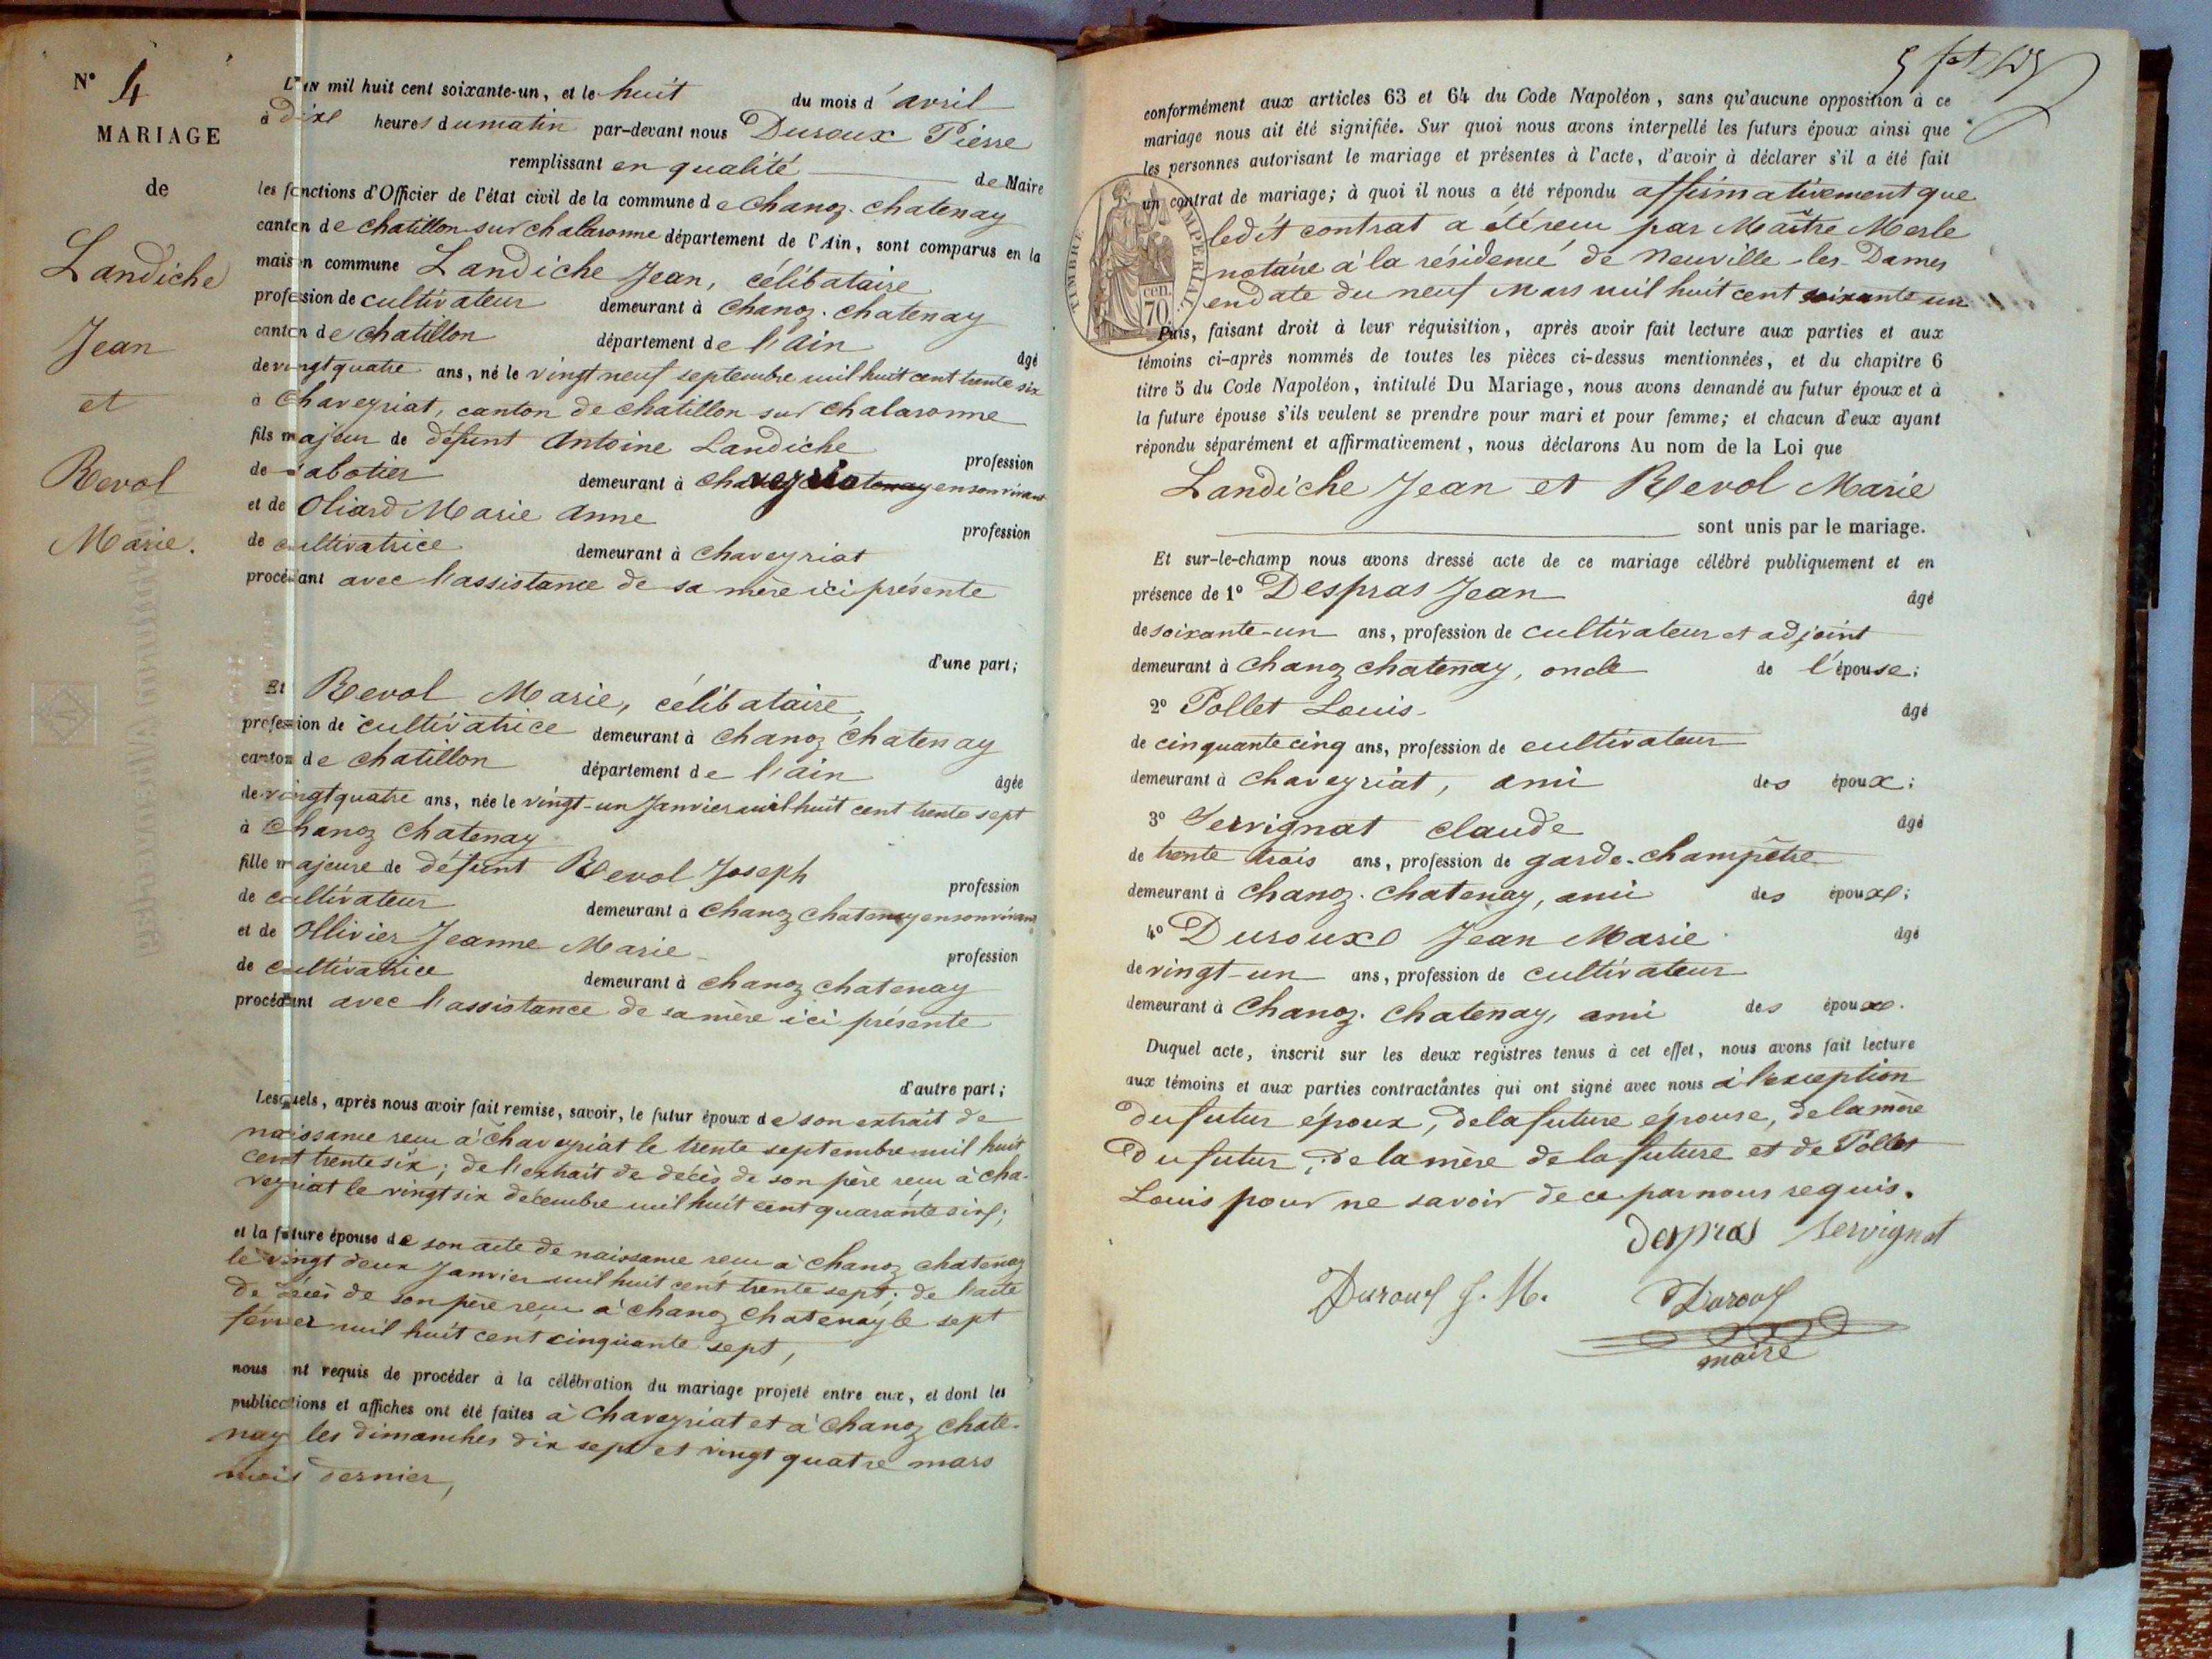 N° 4
MARIAGE
de
Landiche
Jean
et
Revol
Marie.
L'AN mil huit cent soixante-un, et le huit du mois d'avril
à dix heures du matin par-devant nous Duroux Pierre
remplissant en qualité de Maire
les fonctions d'Officier de l'état civil de la commune de Chanoz-chatenay
canton de chatillon sur chalaronne département de l'Ain, sont comparus en la
maison commune Landiche Jean, célibataire
profession de cultivateur demeurant à Chanoz-chatenay
canton de chatillon département de l'ain âgé
de vingt quatre ans, né le vingt neuf septembre mil huit cent trente six
à Chaveyriat, canton de chatillon sur chalaronne
fils majeur de défunt Antoine Landiche profession
de sabotier demeurant à chaveyriat en son vivant
et de Oliard Marie Anne profession
de cultivatrice demeurant à chaveyriat
procédant avec l'assistance de sa mère ici présente
d'une part;
Et Revol Marie, célibataire,
profession de cultivatrice demeurant à Chanoz Chatenay
canton de chatillon département de l'ain âgée
de vingt quatre ans, née le vingt-un Janvier mil huit cent trente sept
à Chanoz Chatenay
fille majeure de défunt Revol Joseph profession
de cultivateur demeurant à Chanoz Chatenay en son vivant
et de Ollivier Jeanne Marie profession
de cultivatrice demeurant à chanoz chatenay
procédant avec l'assistance de sa mère ici présente
d'autre part;
Lesquels, après nous avoir fait remise, savoir, le futur époux de son extrait de
naissance reçu à Chaveyriat le trente septembre mil huit
cent trente six; de l'extrait de décès de son père reçu à cha-
veyriat le vingt six décembre mil huit cent quarante six;
et la future épouse de son acte de naissance reçu à Chanoz chatenay
le vingt deux Janvier mil huit cent trente sept; de l'acte
de décès de son père reçu à chanoz Chatenay le sept
février mil huit cent cinquante sept,
nous ont requis de procéder à la célébration du mariage projeté entre eux, et dont les
publications et affiches ont été faites à Chaveyriat et à Chanoz Chate-
nay les dimanches dix sept et vingt quatre mars
mois dernier,
conformément aux articles 63 et 64 du Code Napoléon, sans qu'aucune opposition à ce
mariage nous ait été signifiée. Sur quoi nous avons interpellé les futurs époux ainsi que
les personnes autorisant le mariage et présentes à l'acte, d'avoir à déclarer s'il a été fait
un contrat de mariage; à quoi il nous a été répondu affirmativement que
ledit contrat a été reçu par Maître Merle
notaire à la résidence de Neuville-les-Dames
en date du neuf Mars mil huit cent soixante un
TIMBRE IMPERIAL
70 cen
Puis, faisant droit à leur réquisition, après avoir fait lecture aux parties et aux
témoins ci-après nommés de toutes les pièces ci-dessus mentionnées, et du chapitre 6
titre 5 du Code Napoléon, intitulé Du Mariage, nous avons demandé au futur époux et à
la future épouse s'ils veulent se prendre pour mari et pour femme; et chacun d'eux ayant
répondu séparément et affirmativement, nous déclarons Au nom de la Loi que
Landiche Jean et Revol Marie
sont unis par le mariage.
Et sur-le-champ nous avons dressé acte de ce mariage célébré publiquement et en
présence de 1° Despras Jean âgé
de soixante-un ans, profession de cultivateur et adjoint
demeurant à Chanoz chatenay, oncle de l'épouse;
2° Pollet Louis âgé
de cinquante cinq ans, profession de cultivateur
demeurant à Chaveyriat, ami des époux;
3° Servignat Claude âgé
de trente trois ans, profession de garde-champêtre
demeurant à Chanoz-chatenay, ami des époux;
4° Duroux Jean Marie âgé
de vingt-un ans, profession de cultivateur
demeurant à Chanoz-Chatenay, ami des époux.
Duquel acte, inscrit sur les deux registres tenus à cet effet, nous avons fait lecture
aux témoins et aux parties contractantes qui ont signé avec nous à l'exception
du futur époux, de la future épouse, de la mère
du futur, de la mère de la future et de Pollet
Louis pour ne savoir de ce par nous requis.
Despras Servignat
Duroux J. M. Duroux
maire